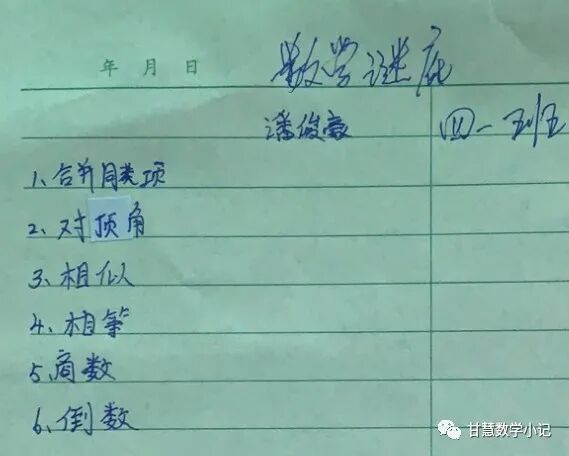 数学谜底
年 月 日
潘俊豪 四一班
1、合并同类项
2、对顶角
3、相似
4、相等
5、商数
6、倒数
甘慧数学小记